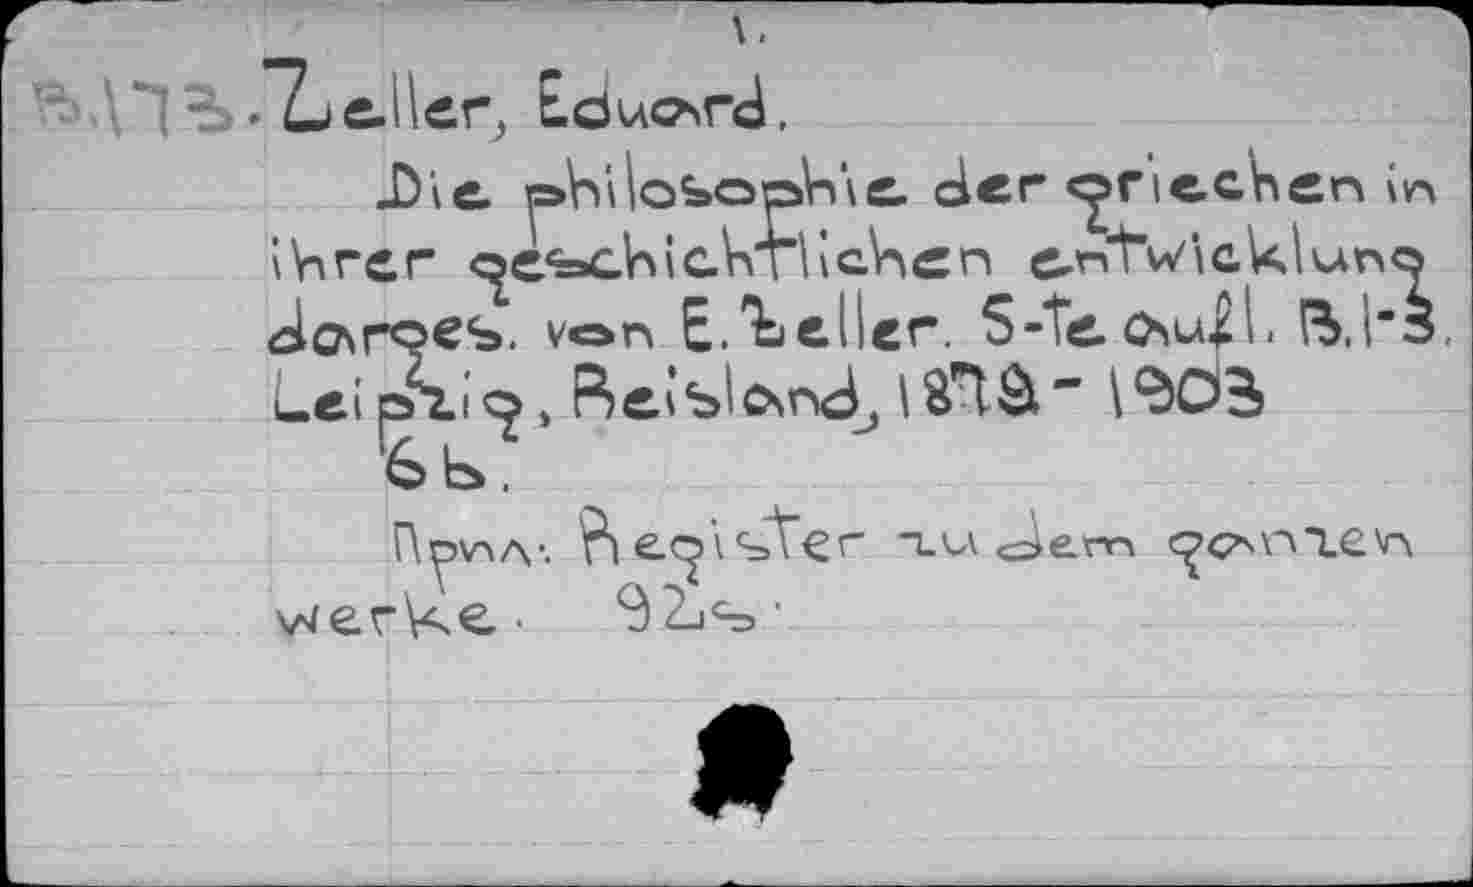 1.
Zeller, Eduard.
Die philosophie der griechen in
ihrer geschichtlichen entwicklung
dargES. von E. Zeller. 5-te aufl. B.1-3.
Leipzig, Reisland, 1892-1903
6 b.
Прил.: Register zu dem ganzen
werke.